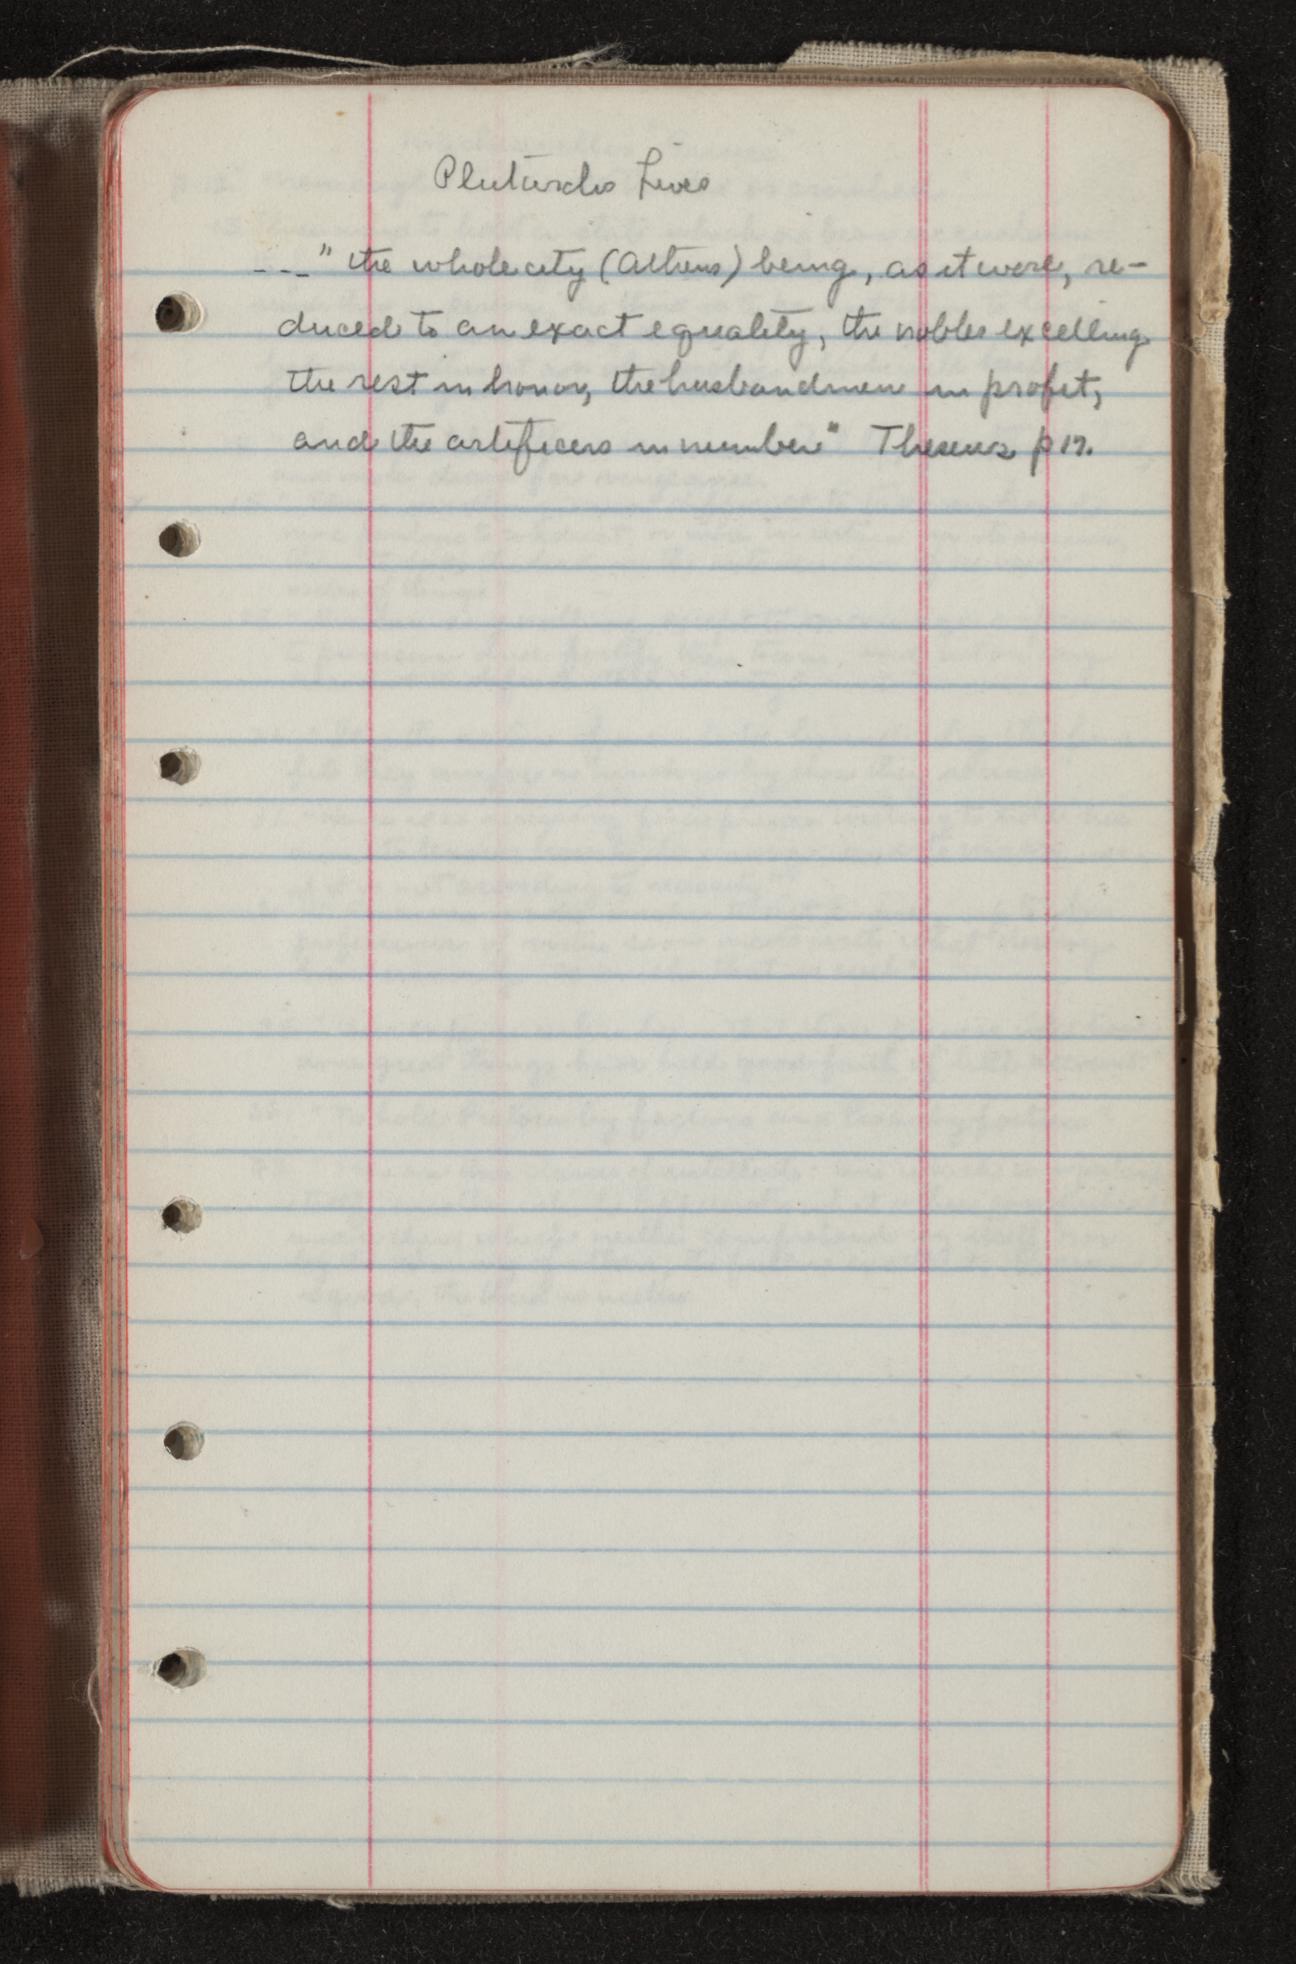 Plutarchs Lives
---" the whole city (Athens) being, as it were, re-
duced to an exact equality, the nobles excelling
the rest in honor, the husbandmen in profit,
and the artificers in number" Theseus p 17.